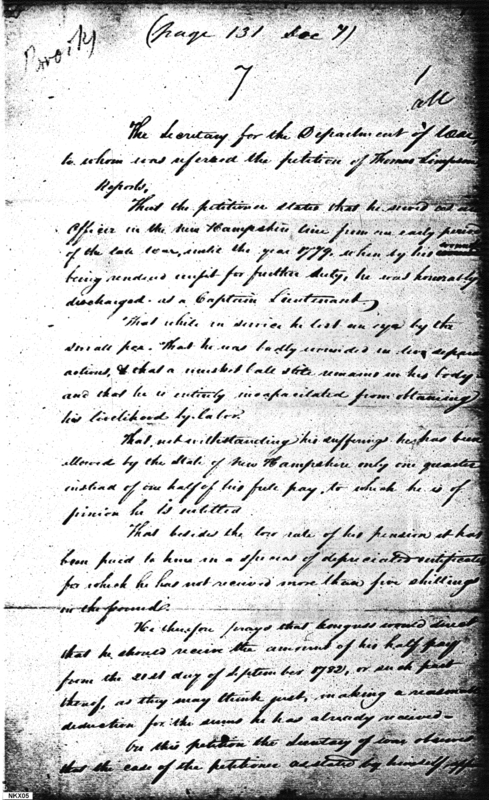 Brooks
(page 131 Doc 7)
7
1
all
The Secretary for the Department of War,
to whom was refered the petition of Thomas Simpson
Reports,
That the petitioner states that he served as an
Officer in the New Hampshire line from an early period
of the late war, until the year 1779. when by his wounds
being rendered unfit for further duty, he was honorably
discharged as a Captain Lieutenant,
That while in service he lost an eye by the
small pox. That he was badly wounded in two separate
actions, & that a musket ball still remains in his body
and that he is entirely incapacitated from obtaining
his livelihood by labor.
That, notwithstanding his sufferings he has been
allowed by the State of New Hampshire only one quarter
instead of one half of his full pay, to which he is of
pinion he is entitled
That besides the low rate of his pension it has
been paid to him in a species of depreciated certificates
for which he has not received more than five shillings
in the pound.
He therefore prays that Congress would direct
that he should receive the amount of his half pay
from the 21st day of September 1782, or such part
thereof, as they may think just, making a reasonable
deduction for the sums he has already received—
On this petition the Secretary of war observes
that the case of the petitioner as stated by himself
NKX05